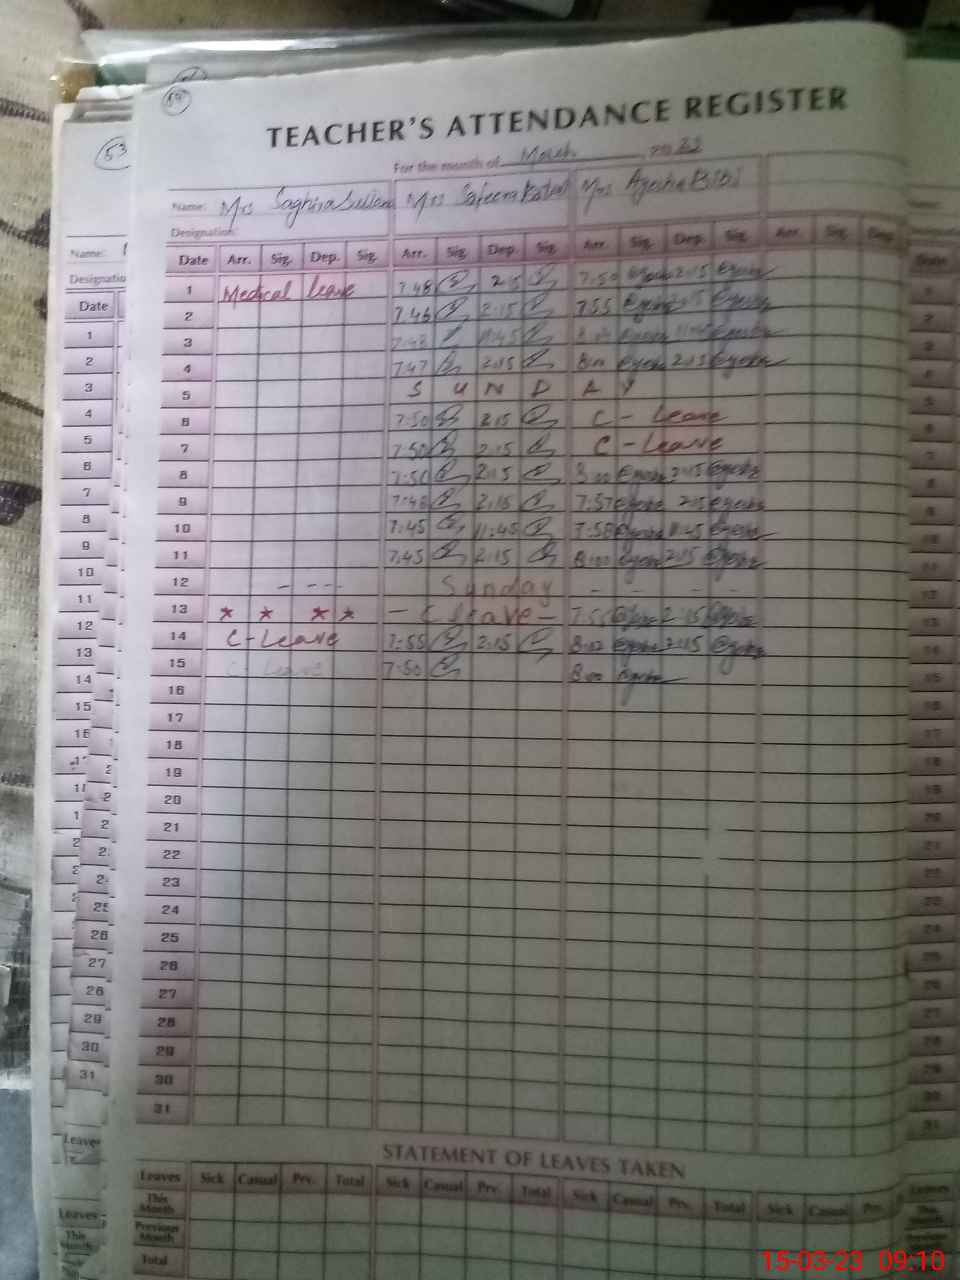 54
TEACHER'S ATTENDANCE REGISTER
For the month of March, 2023
Name: Mrs Saghira Mrs Mrs Ayesha Bibi
Designation:
Date Arr. Sig. Dep. Sig. Arr. Sig. Dep. Sig. Arr. Sig. Dep. Sig. Arr. Sig. Dep.
1 Medical leave 7:48 2:15 7:50 Ayesha 2:15 Ayesha
2 7:46 2:15 7:55 Ayesha 2:15 Ayesha
3 7:48 11:45 11:45 Ayesha
4 7:47 2:15 8:00 Ayesha 2:15 Ayesha
5 S U N D A Y
6 7:50 2:15 C - Leave
7 7:50 2:15 C - Leave
8 7:50 2:15 8:00 Ayesha 2:15 Ayesha
9 7:48 2:15 7:57 Ayesha 2:15 Ayesha
10 7:45 11:45 7:58 Ayesha 11:45 Ayesha
11 7:45 2:15 8:00 Ayesha 2:15 Ayesha
12 - - - - Sunday - - - -
13 * * * * - C Leave - 7:55 Ayesha 2:15 Ayesha
14 C - Leave 7:55 2:15 8:02 Ayesha 2:15 Ayesha
15 C - Leave 7:50 8:00 Ayesha
16
17
18
19
20
21
22
23
24
25
26
27
28
29
30
31
STATEMENT OF LEAVES TAKEN
Leaves Sick Casual Prv. Total Sick Casual Prv. Total Sick Casual Prv. Total Sick Casual Prv.
This Month
Previous Month
Total
53
Name:
Designation
Date
1
2
3
4
5
6
7
8
9
10
11
12
13
14
15
25
26
27
28
29
30
31
Leaves
This Month
15-03-23 09:10